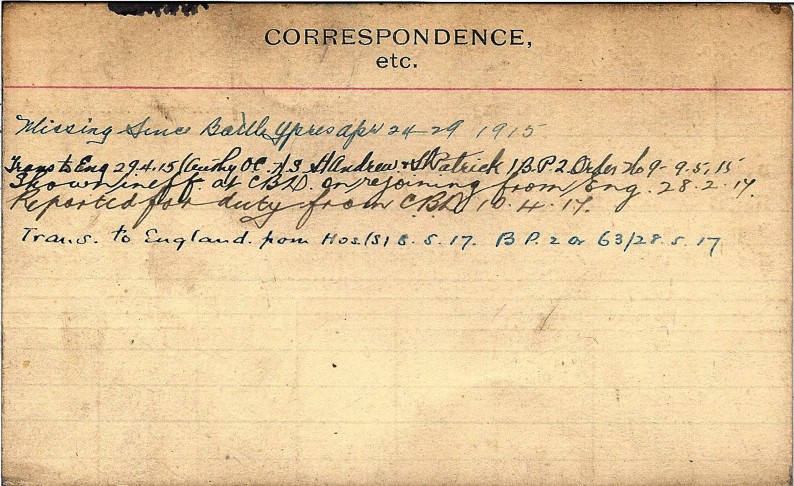 CORRESPONDENCE,
etc.
Missing Since Battle Ypres Apr 24-29 1915
Trans to Eng 29.4.15 (Authy OC. H.S. St Andrew & St Patrick) B.P.2. Order No 9 - 9.5.15
Shown ineff. at C.B.D. on rejoining from Eng. 28.2.17.
Reported for duty from C.B.D. 10.4.17.
Trans. to England. from Hos(S) 8.5.17. B P. 2 or 63/28.5.17